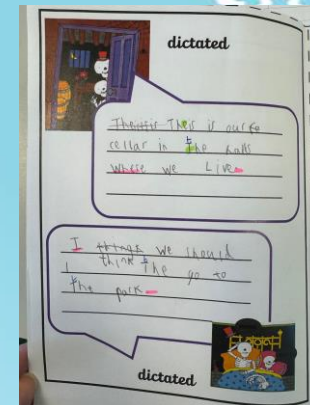 dictated
This is our
cellar in the halls
where we Live.
I things we should
think the go to
the park.
dictated